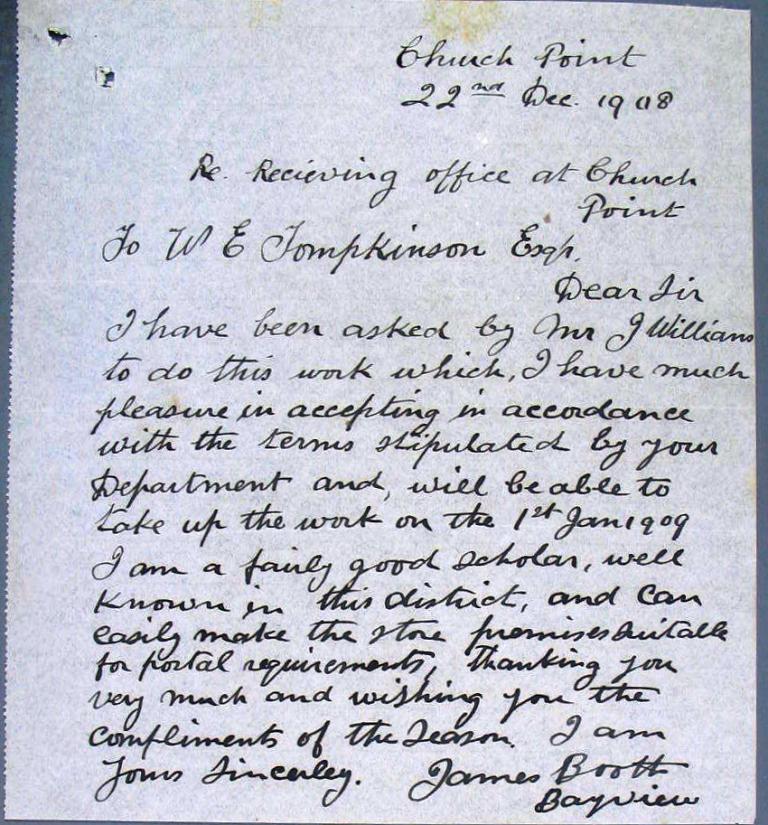 Church Point
22nd Dec. 1908
Re. Recieving office at Church
Point
To W E Tompkinson Esqr.
Dear Sir
I have been asked by Mr J Williams
to do this work which, I have much
pleasure in accepting in accordance
with the terms stipulated by your
Department and, will be able to
take up the work on the 1st Jan 1909
I am a fairly good scholar, well
known in this district, and can
easily make the store premises suitable
for postal requirements, thanking you
very much and wishing you the
compliments of the Season. I am
Yours Sincerley. James Booth
Bayview